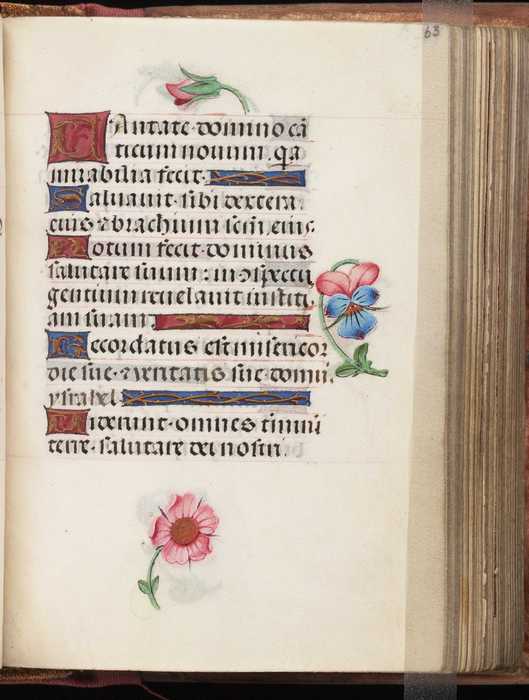 63
Cantate domino cā
ticum novum. qa
mirabilia fecit.
Saluavit sibi dextera
eius & brachium scm̄ eius.
Notum fecit dominus
salutare suum: in conspectu
gentium revelavit iustiti
am suam
Recordatus est misericor
die sue. & veritatis sue domui.
ysrahel
Viderunt omnes t̄mini
terre. salutare dei nostri.